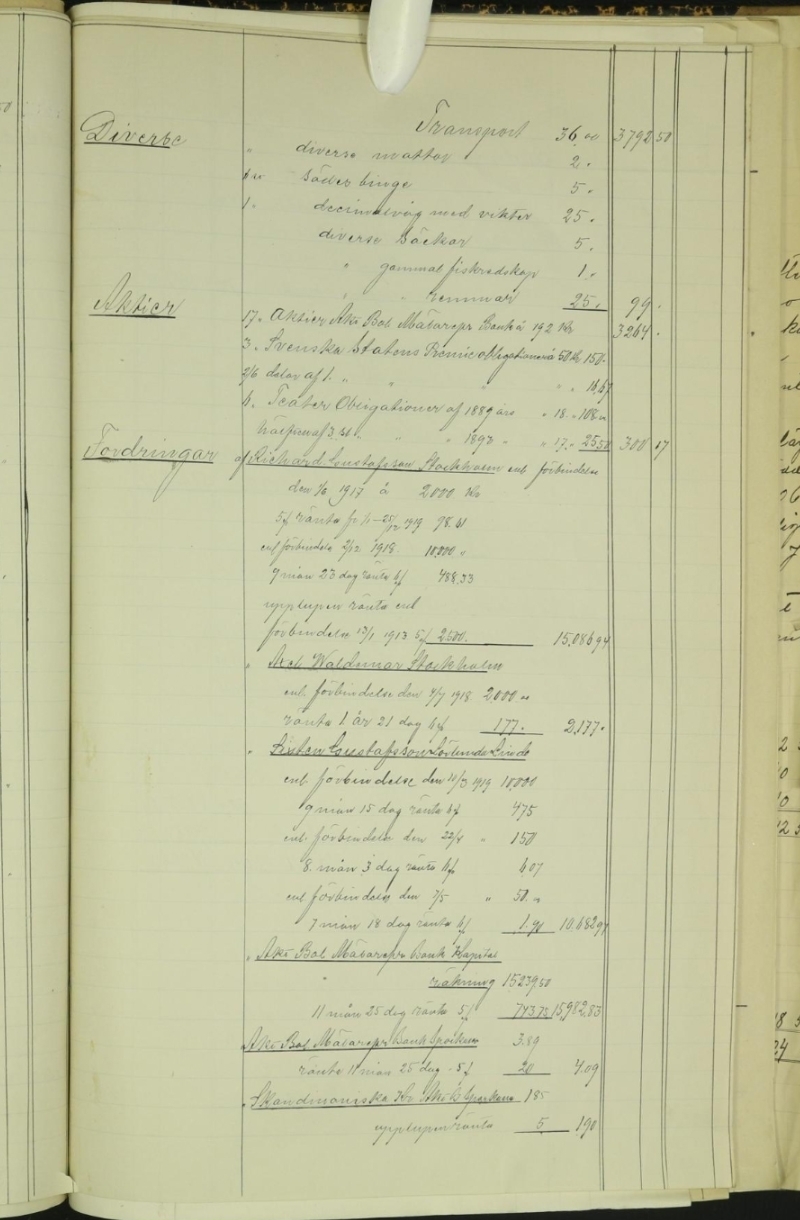 Diverse Transport 36,00 3792 50
" diverse mattor 2 "
sädes binge 5 "
1 " decimalvåg med vikter 25 "
diverse säckar 5 "
" gammal fiskredskap 1 "
" " remmar 25 " 99 "
Aktier 17 " Aktier Akt Bol Mälarepr Bank à 192 Kr 3264 "
3 " Svenska Statens Premieobligationer à 50 Kr 150 "
2/6 delar af 1 " " " " " 16,67
6 " Teater Obligationer af 1889 års " 18 " 108 "
hälften af 3 st " " " 1893 " " 17 " 25 50 300 17
Fordringar af Richard Gustafsson Stockholm enl förbindelse
den 1/6 1917 à 2000 Kr
5% ränta fr 1/1 – 25/12 1919 98.61
enl förbindelse 2/12 1918 10,000 "
9 mån 23 dag ränta 6% 488,33
upplupen ränta enl
förbindelse 13/1 1913 5% 2500. 15,086,94
" Axel Waldemar Stockholm
enl förbindelse den 9/7 1918 2000 "
ränta 1 år 21 dag 6% 177 " 2,177 "
" Sixten Gustafsson Linde
enl förbindelse den 11/3 1919 10,000
9 mån 15 dag ränta 6% 475
enl förbindelse den 22/4 " 150
8 mån 3 dag ränta 6% 6,07
enl förbindelse den 7/5 " 50 "
7 mån 18 dag ränta 6% 1.90 10.682,97
" Akt Bol Mälarepr Bank Kapital
" räkning 15239,50
11 mån 25 dag ränta 5% 743.75 15,982,83
Akt Bol Mälarepr Bank Sparkassa 3.89
ränta 11 mån 25 dag 5% 20 4.09
" Skandinaviska Kr Akt B Sparkassa 185
upplupen ränta 5 190